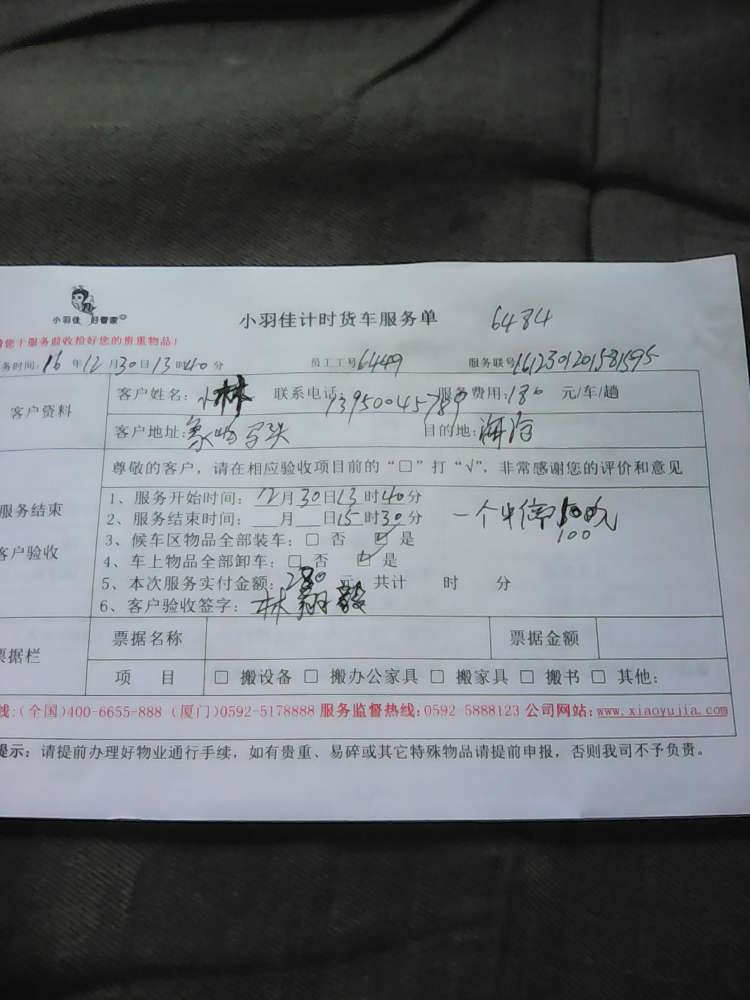 小羽佳 好管家
小羽佳计时货车服务单 6484
服务验收检好您的贵重物品!
务时间:16年12月30日13时40分 员工工号6449 服务联号1612301201581595
客户资料
客户姓名:小林 联系电话:13950045789 服务费用:180 元/车/趟
客户地址: 目的地:
尊敬的客户，请在相应验收项目前的“□”打“√”，非常感谢您的评价和意见
服务结束
客户验收
1、服务开始时间:12月30日13时40分
2、服务结束时间: 月 日15时30分
一个 100元
100
3、候车区物品全部装车:□ 否 ☑ 是
4、车上物品全部卸车:□ 否 ☑ 是
5、本次服务实付金额:280元 共计 时 分
6、客户验收签字:林
票据栏
票据名称 票据金额
项 目 □ 搬设备 □ 搬办公家具 □ 搬家具 □ 搬书 □ 其他:
线:(全国)400-6655-888 (厦门)0592-5178888 服务监督热线:0592-5888123 公司网站:www.xiaoyujia.com
提示: 请提前办理好物业通行手续，如有贵重、易碎或其它特殊物品请提前申报，否则我司不予负责。